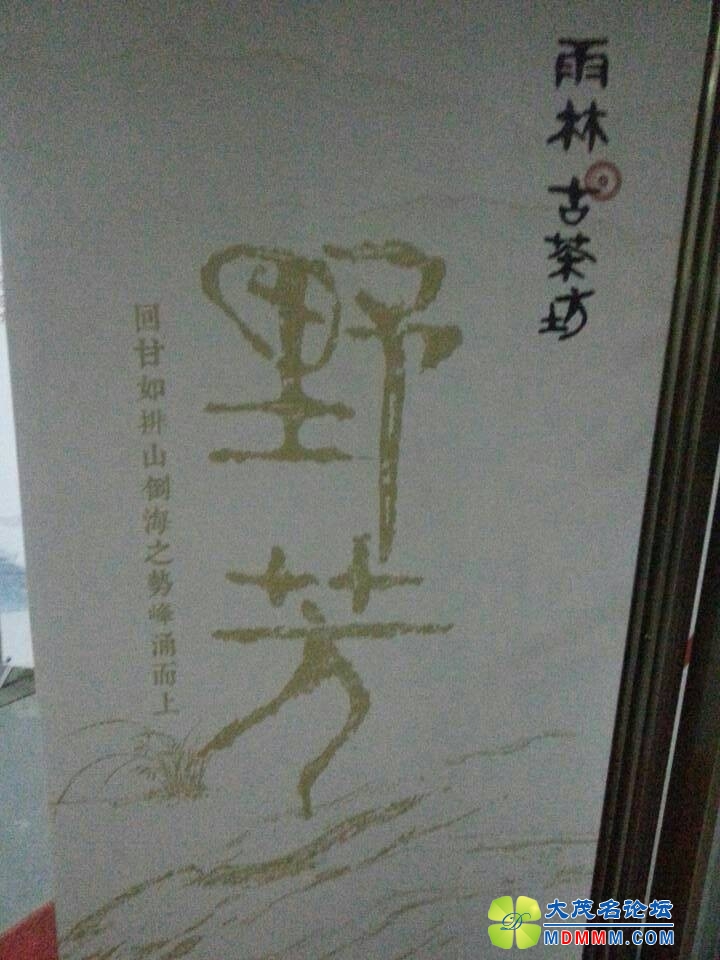 雨林古茶坊
野芳
回甘如排山倒海之勢峰涌而上
大茂名论坛
MDMMM.COM